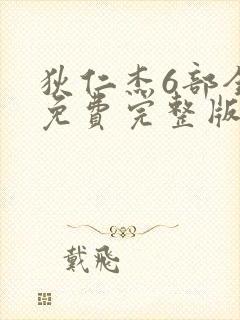 狄仁杰6部全
免费完整版
戴飛